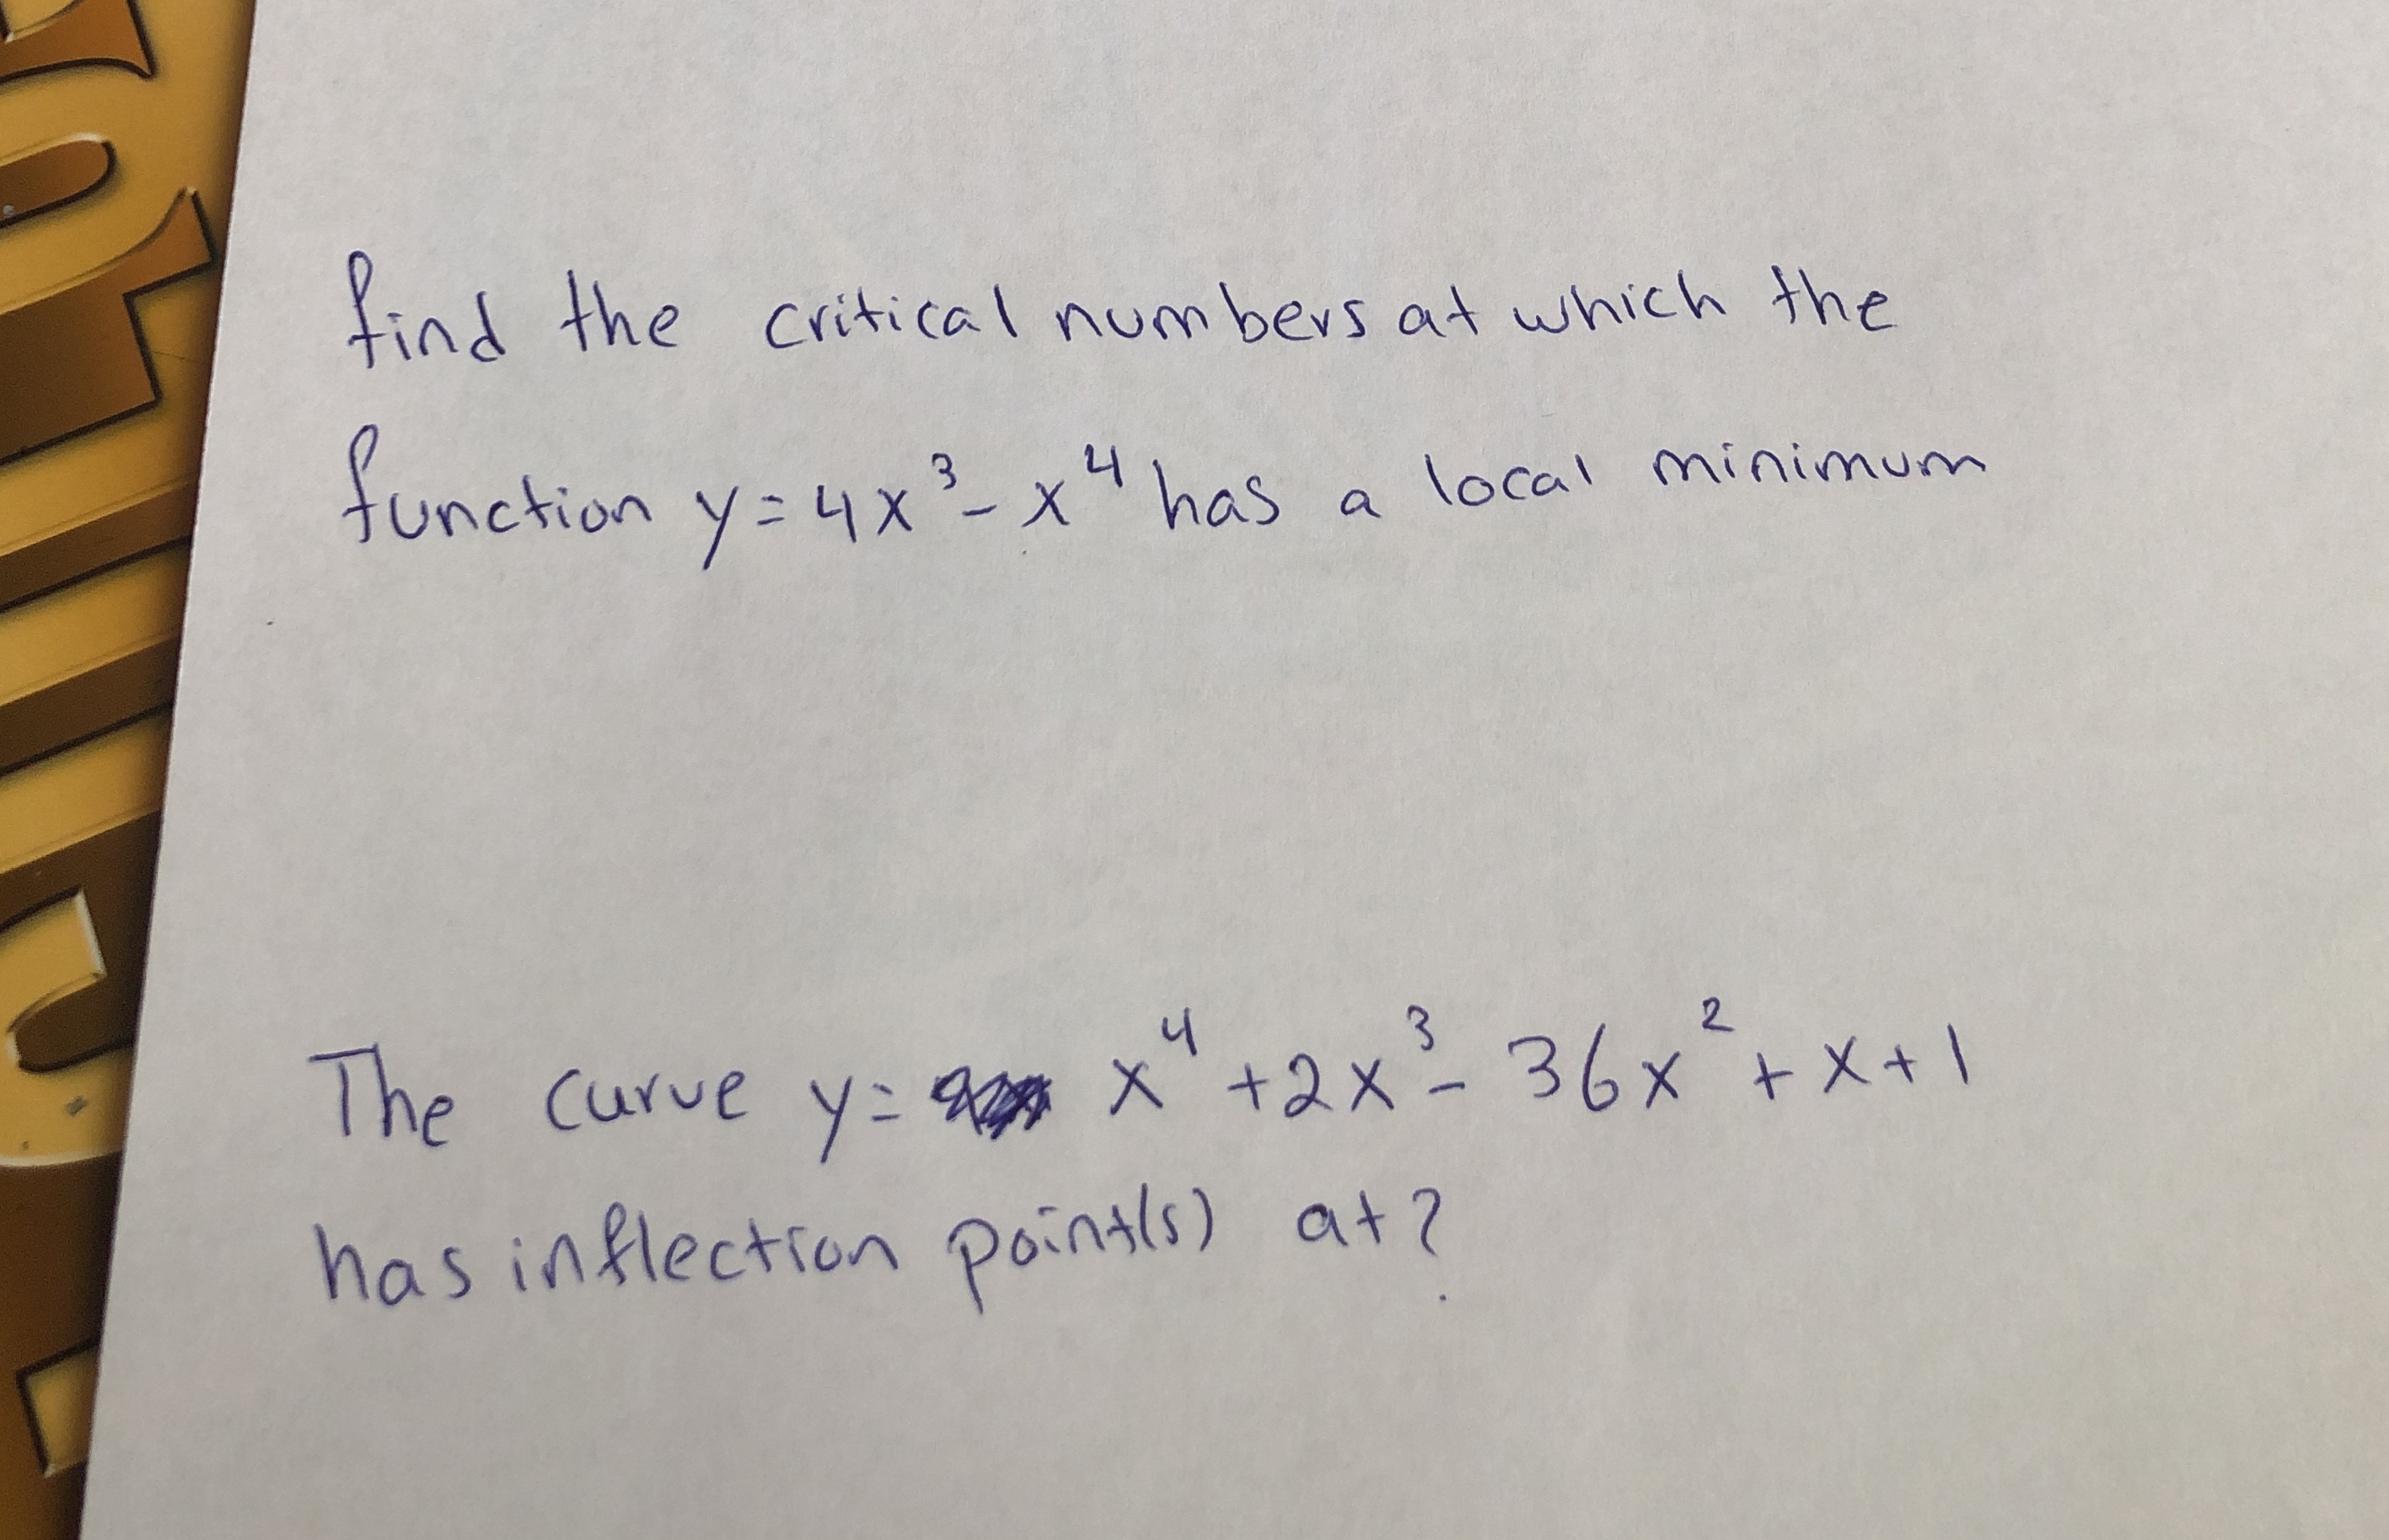 find the critical numbers at which the
function y = 4x³ - x⁴ has a local minimum
The curve y = x⁴ + 2x³ - 36x² + x + 1
has inflection point(s) at?